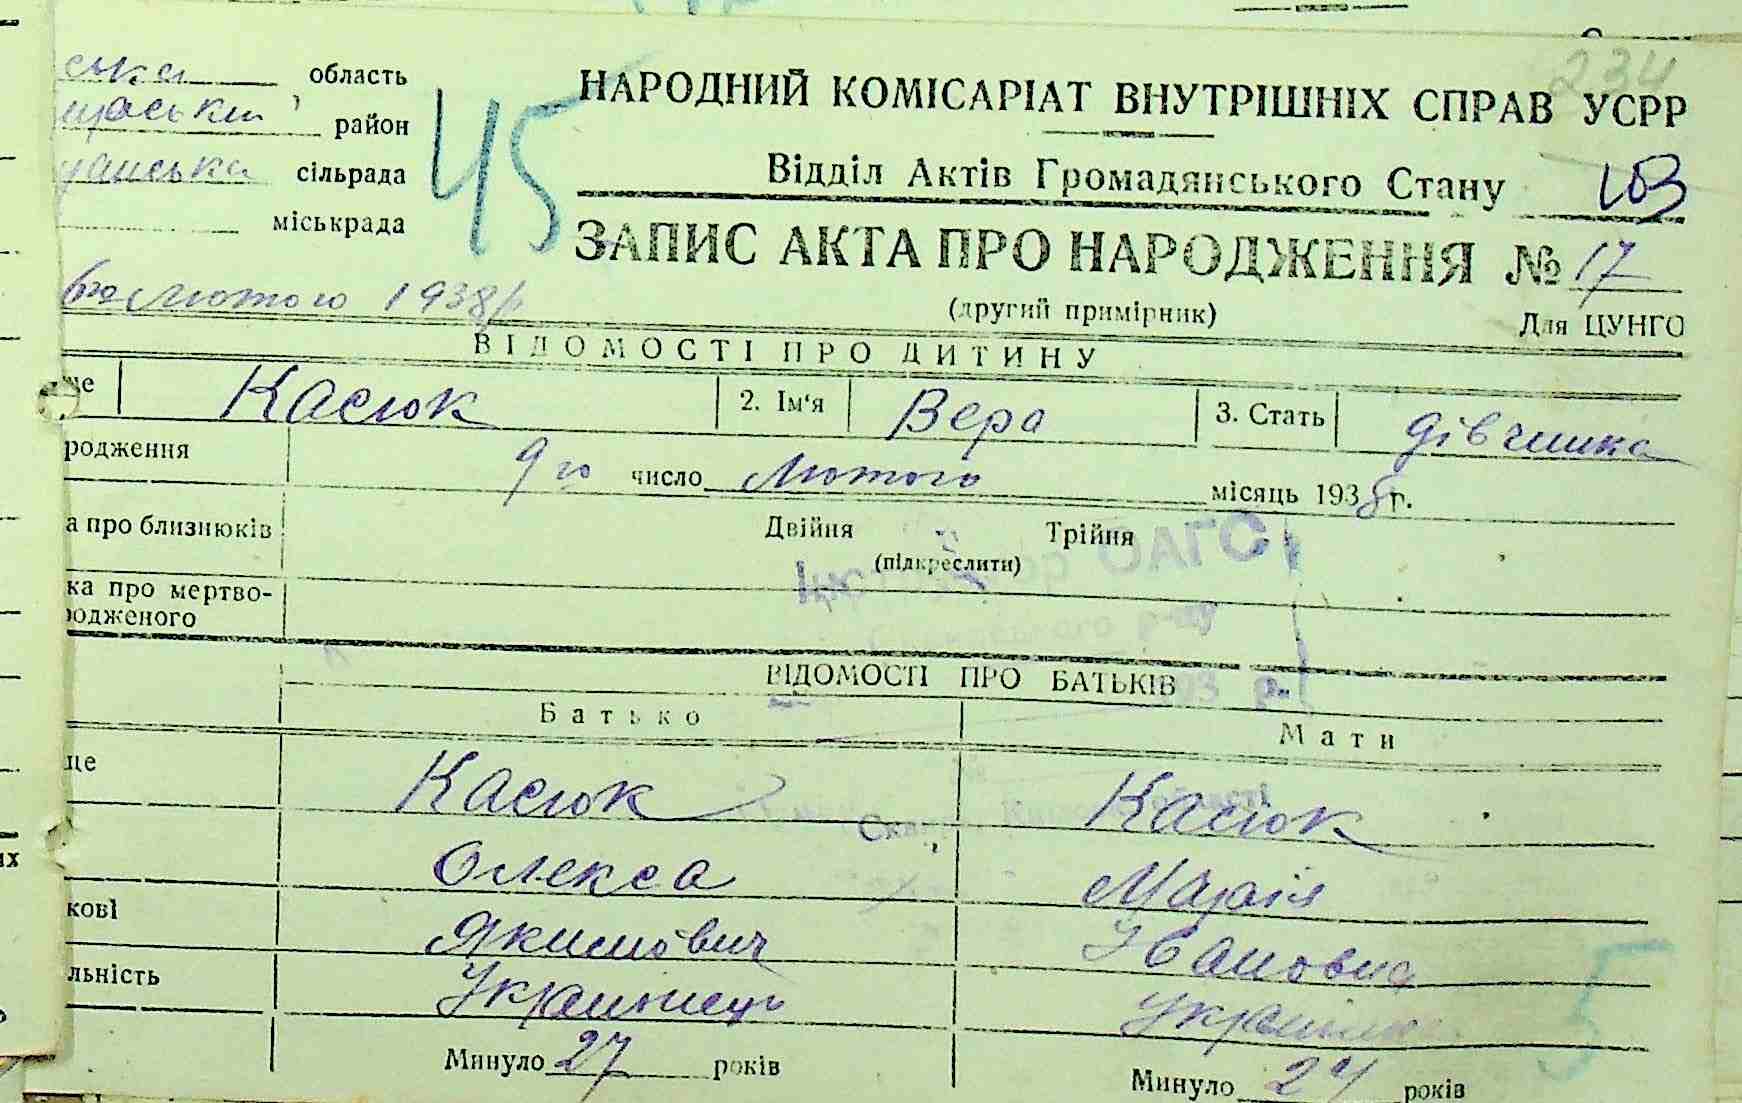 234
ська область
район
сільрада
міськрада
45
НАРОДНИЙ КОМІСАРІАТ ВНУТРІШНІХ СПРАВ УСРР
Відділ Актів Громадянського Стану
ЗАПИС АКТА ПРО НАРОДЖЕННЯ № 17
(другий примірник)
Для ЦУНГО
лютого 1938 р
ВІДОМОСТІ ПРО ДИТИНУ
ще Касюк 2. Ім'я Вера 3. Стать дівчинка
родження 9го число лютого місяць 1938 г.
а про близнюків Двійня Трійня
(підкреслити)
ОАГС
ка про мертво-
родженого
р-ну
ВІДОМОСТІ ПРО БАТЬКІВ
193 р.
Батько Мати
ще Касюк Касюк
Олекса Марія
кові Якимович Івановна
льність Українець Українка
5
Минуло 27 років Минуло 24 років